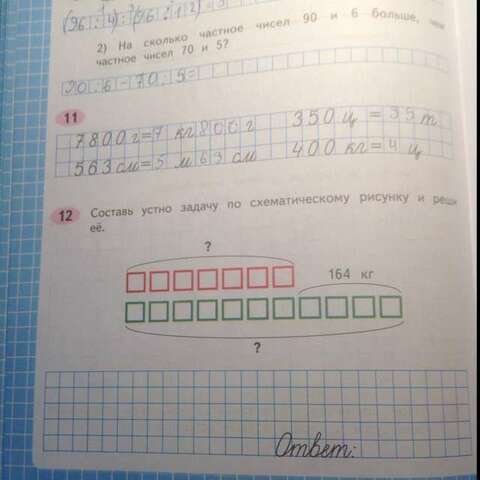 (96 : 4) : (96 : 12) =
2) На сколько частное чисел 90 и 6 больше, чем
частное чисел 70 и 5?
90 : 6 - 70 : 5 =
11
7800 г = 7 кг 800 г 350 ц = 35 т
563 см = 5 м 63 см 400 кг = 4 ц
12 Составь устно задачу по схематическому рисунку и реши
её.
?
164 кг
?
Ответ: